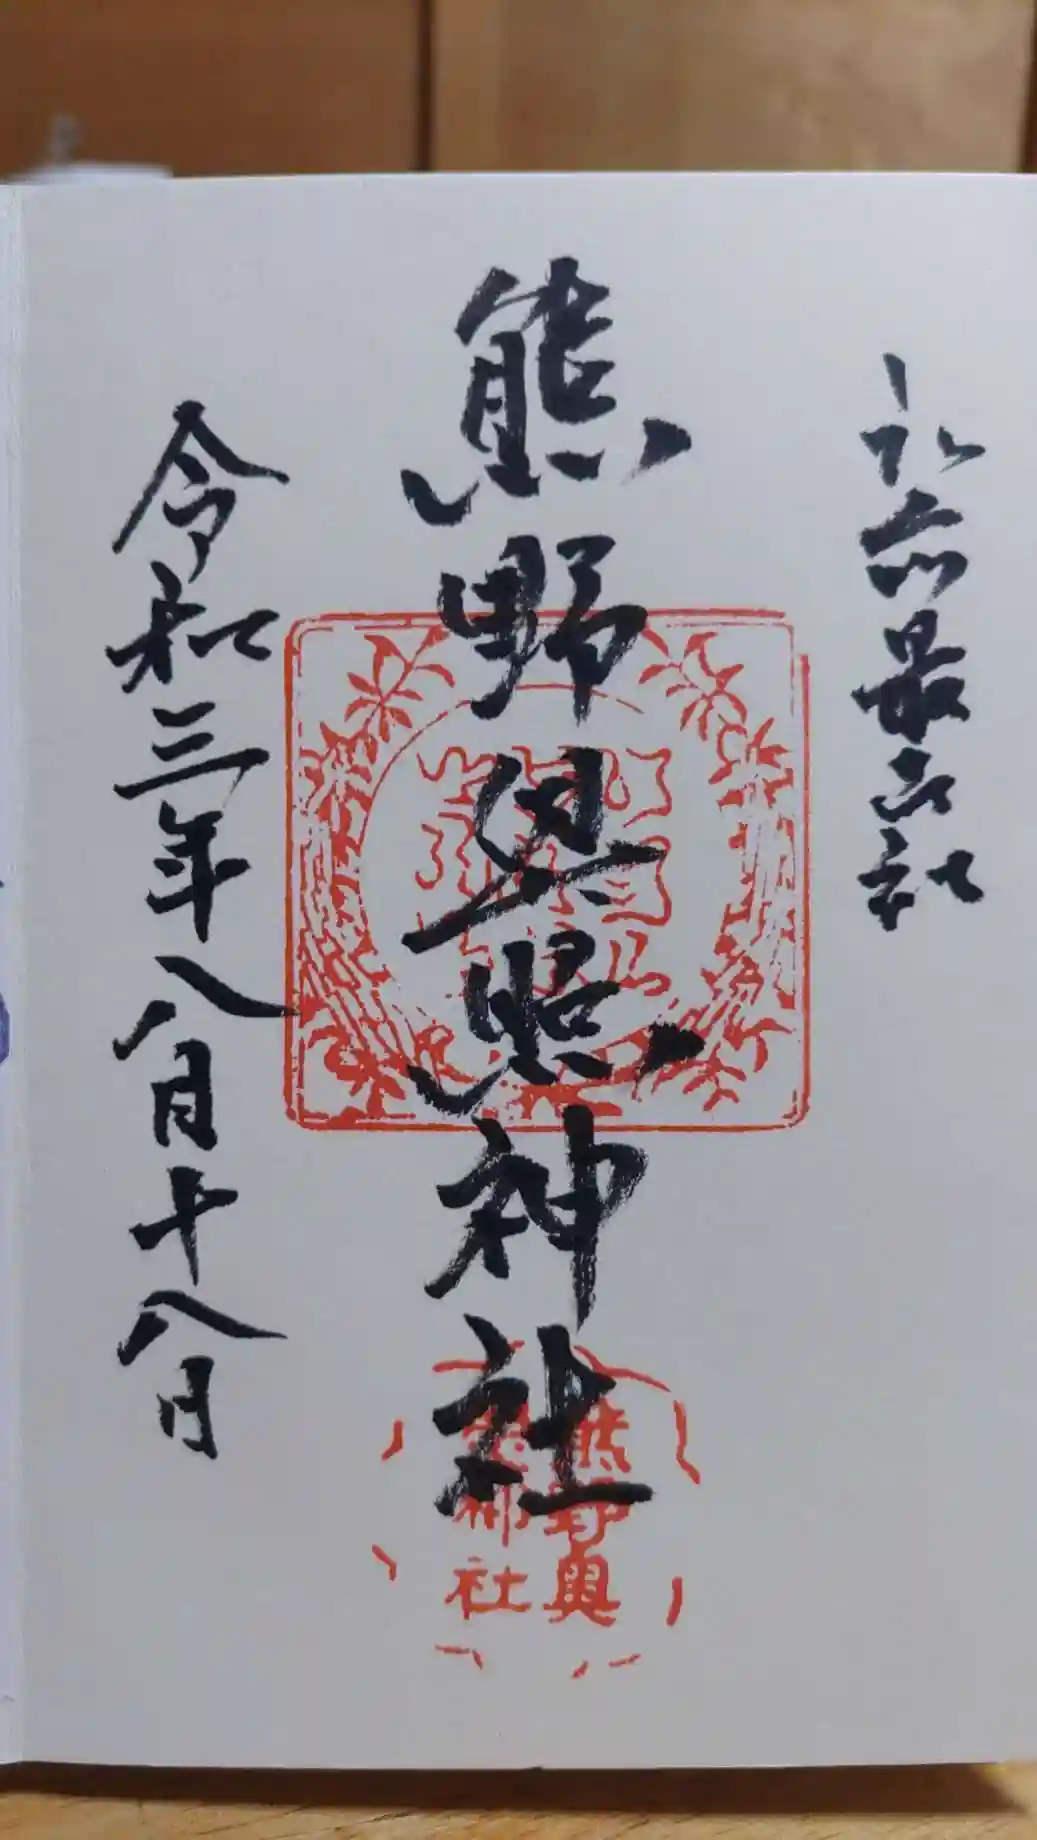 弘前最古社
熊野奥照神社
令和三年八月十八日
熊野奥
照神社